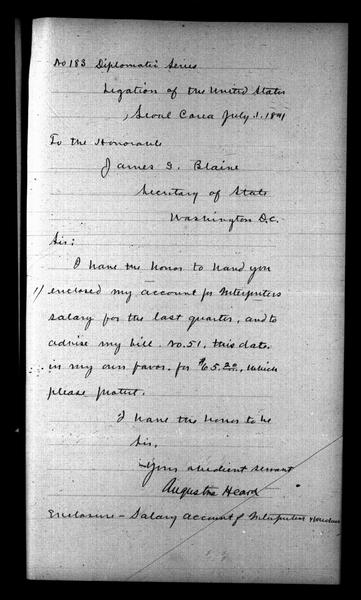 No 183 Diplomatic Series
Legation of the United States
Seoul Corea July 1. 1891
To the Honorable
James G. Blaine
Secretary of State
Washington D.C.
Sir:
I have the honor to hand you
1/ enclosed my account for Interpreters
salary for the last quarter, and to
advise my bill No. 51, this date
in my own favor for $65.20, which
please protect.
I have the honor to be
Sir,
Your obedient servant
Augustine Heard
Enclosure - Salary account of Interpreters